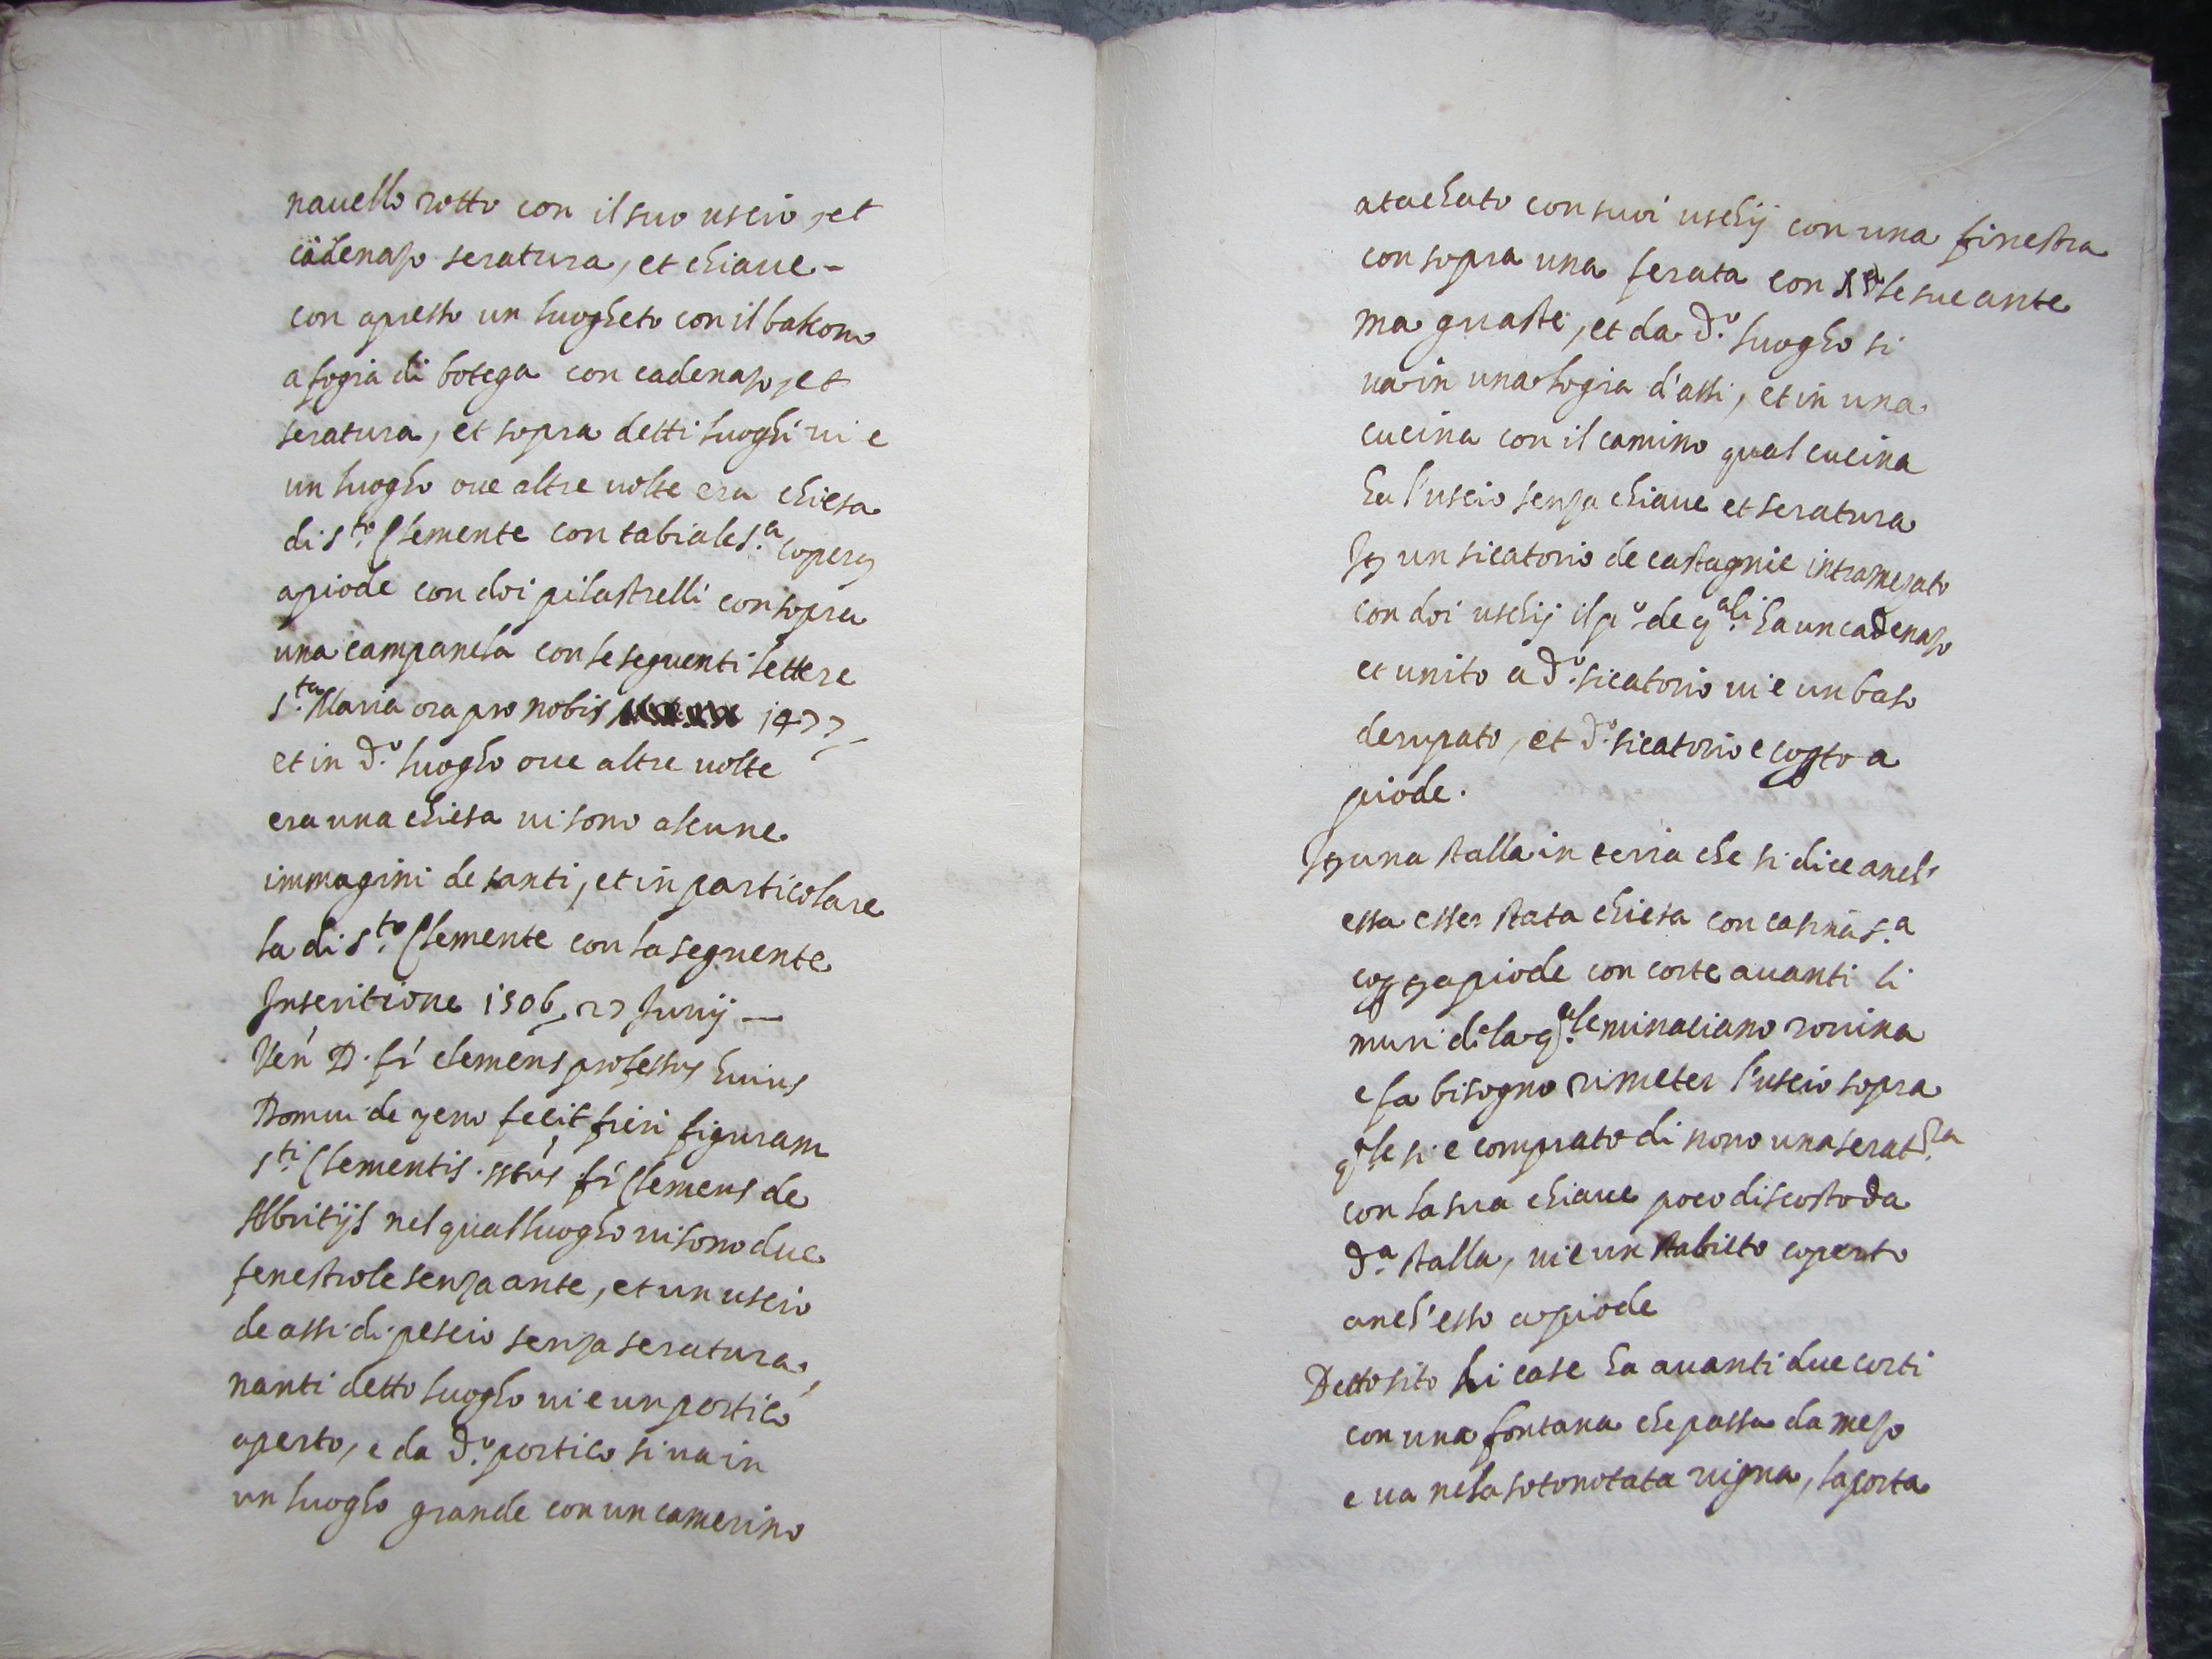 nauello rotto con il suo uscio, et
cadenazo seratura, et chiaue -
con apresso un luogheto con il balcono
a fogia di botega con cadenazo, et
seratura, et sopra detti luoghi ui e
un luogho oue altre uolte era chiesa
di s.to Clemente con tabiale s.a
coperto
apiode con doi pilastrelli con sopra
una campanela con le seguenti lettere
S.ta Maria ora pro nobis 1477 -
et in d.o luogho oue altre uolte
era una chiesa ui sono alcune
immagini de santi, et in particolare
la di s.to Clemente con la seguente
Inscritione 1506, 27 Junij —
Ven D. fr clemens professus huius
Domui de zeno fecit fieri figuram
s.ti Clementis. fr Clemens de
Albritijs nel qual luogho ui sono due
fenestrole senza ante, et un uscio
de assi di pescio senza seratura,
nanti detto luogho ui e un portico
aperto, e da d.o portico si ua in
un luogho grande con un camerino
atachato con suoi uschij con una finestra
con sopra una ferata con le sue ante
ma guaste, et da d.o luogho si
ua in una logia d'assi, et in una
cucina con il camino qual cucina
ha l'uscio senza chiaue et seratura
It un sicatorio de castagnie intramezato
con doi uschij il p.o de q.ali ha un cadenazo
et unito a d.o sicatorio ui e un baso
derupato, et d.o sicatorio e copto a
piode.
It una stalla in terra che si dice anch'
essa esser stata chiesa con casina s.a
copta a piode con corte auanti li
muri di la q.ale minaciano rouina
e fa bisogno rimeter l'uscio sopra
q.le si e comprato di nouo una serat.ra
con la sua chiaue poco discosto da
d.a stalla, ui e un stabieto coperto
anch'esso a piode
Detto sito di case ha auanti due corti
con una fontana che passa da mezo
e ua nela sotonotata uigna, la porta